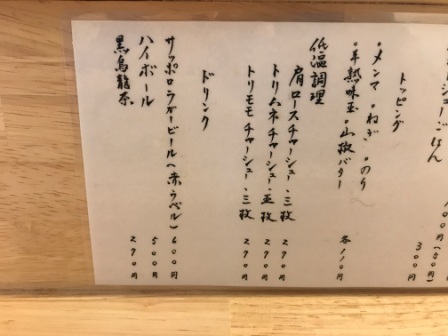 ごはん 100円(50円)
300円
トッピング
・メンマ ・ねぎ ・のり
・半熟味玉 ・山椒バター 各110円
低温調理
肩ロースチャーシュー・三枚 290円
トリムネチャーシュー・五枚 290円
トリモモチャーシュー・三枚 290円
ドリンク
サッポロラガービール(赤ラベル) 600円
ハイボール 500円
黒烏龍茶 290円